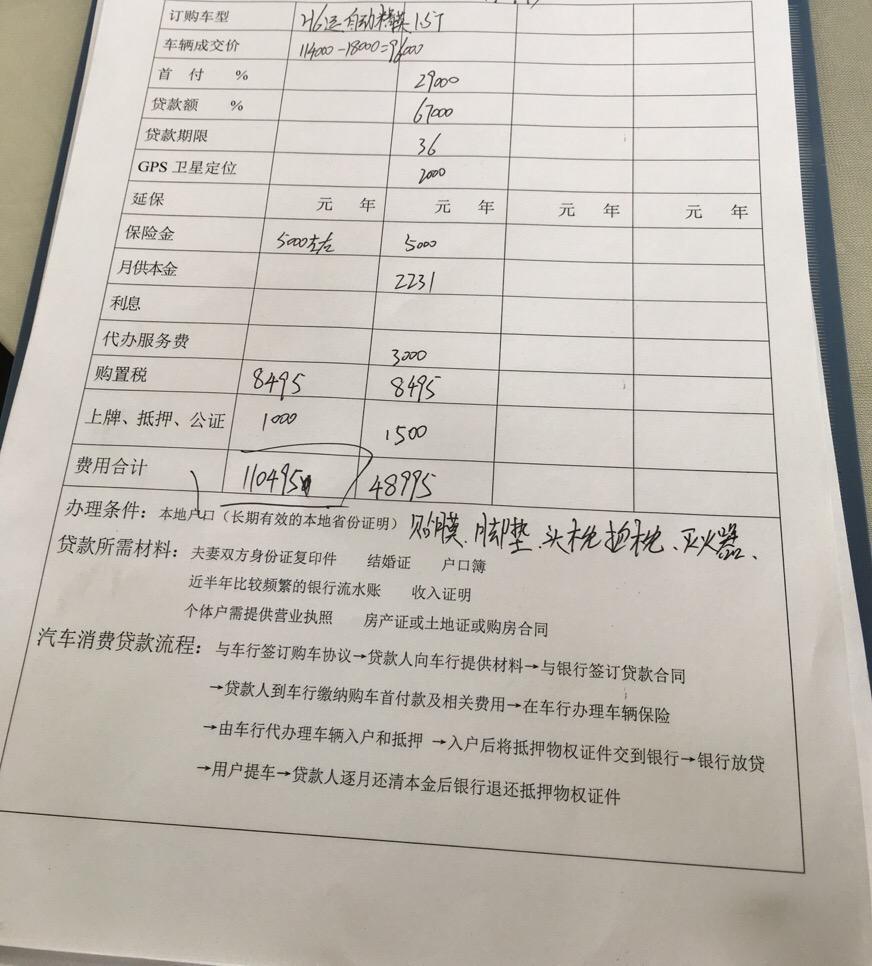 订购车型 H6运自动精英1.5T
车辆成交价 114000-18000=96000
首 付 % 29000
贷款额 % 67000
贷款期限 36
GPS 卫星定位 2000
延保 元 年 元 年 元 年 元 年
保险金 5000左右 5000
月供本金 2231
利息
代办服务费 3000
购置税 8495 8495
上牌、抵押、公证 1000 1500
费用合计 110495 48995
办理条件：本地户口（长期有效的本地省份证明） 贴膜、脚垫、头枕抱枕、灭火器、
贷款所需材料：夫妻双方身份证复印件 结婚证 户口簿
近半年比较频繁的银行流水账 收入证明
个体户需提供营业执照 房产证或土地证或购房合同
汽车消费贷款流程：与车行签订购车协议→贷款人向车行提供材料→与银行签订贷款合同
→贷款人到车行缴纳购车首付款及相关费用→在车行办理车辆保险
→由车行代办理车辆入户和抵押 →入户后将抵押物权证件交到银行→银行放贷
→用户提车→贷款人逐月还清本金后银行退还抵押物权证件